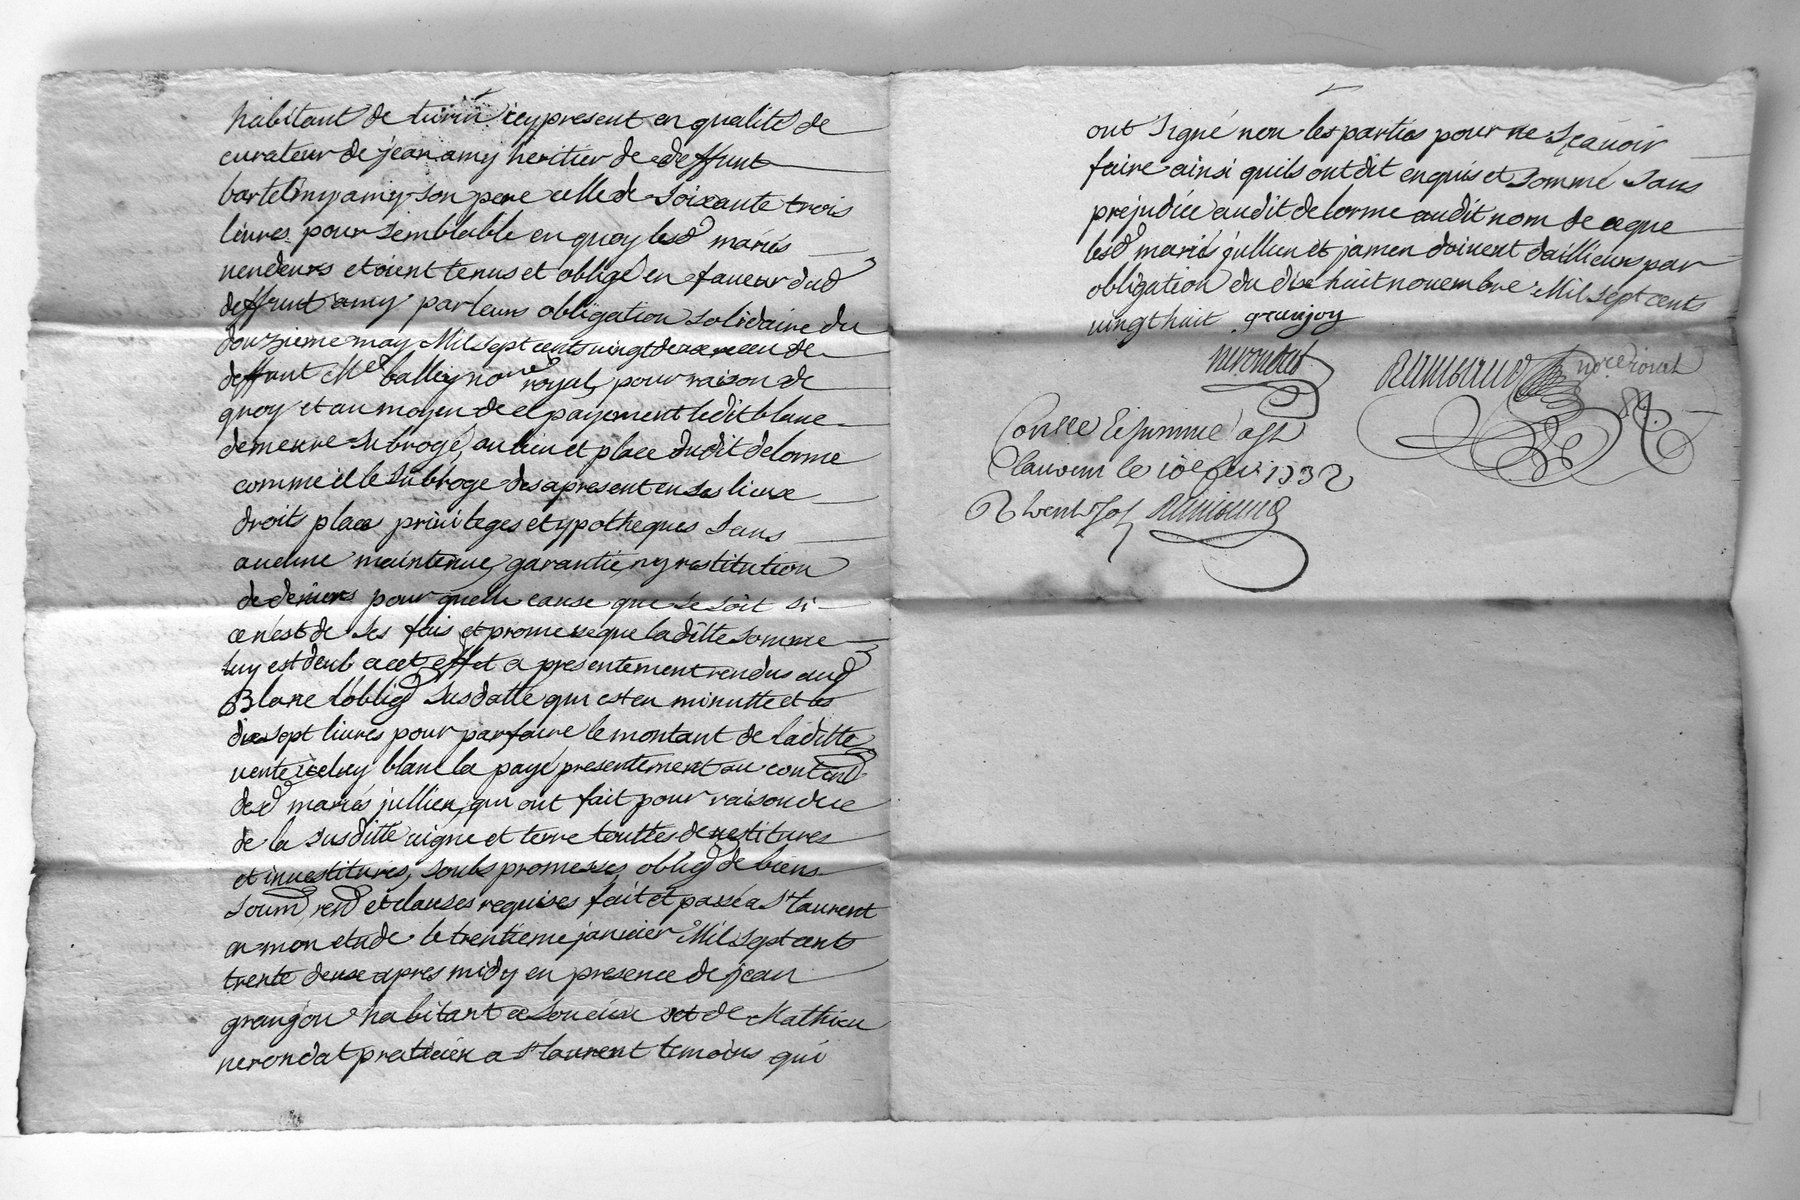 habitant de turin icy present en qualité de
curateur de jean amy heritier de deffunt
bartelmy amy son pere celle de soixante trois
livres pour semblable en quoy lesd mariés
vendeurs etoient tenus et obligé en faveur dud
deffunt amy par leurs obligation solidaire du
douzieme may Mil sept cents vingt deux receu de
deffunt Me balley nore royal, pour raison de
quoy et au moyen de ce payement ledit blanc
demeure subrogé, au lieu et place dudit delorme
comme il le subroge des apresent en ses lieux
droits places privileges et ypotheques sans
aucune maintenue, garantie, ny restitution
de deniers pour quelle cause que se soit si
ce n'est de ses fais et promesse que laditte somme
luy est deub a cet effet a presentement rendus aud
Blanc l'oblig susdatté qui est en minutte et les
dix sept livres pour parfaire le montant de laditte
vente iceluy blanc la payé presentement au contend
desd mariés jullien, qui ont fait pour raison due
de la susditte vigne et terre touttes devestitures
et investitures, soubs promesses, oblig de biens
soum ren et clauses requises fait et passé a St laurent
en mon etude le trentieme janvier Mil sept cents
trente deux apres midy en presence de jean
granjon habitant a soucieu et de Mathieu
nerondat praticien a St laurent temoins qui
ont signé non les parties pour ne sçavoir
faire ainsi quils ont dit enquis et sommé sans
prejudice audit delorme audit nom de ce que
lesd mariés jullien et jamen doivent daillieurs par
obligation du dix huit novembre Mil sept cents
vingt huit granjon
nerondat
nore royal
Conlle
laurent le 10e fev 1732